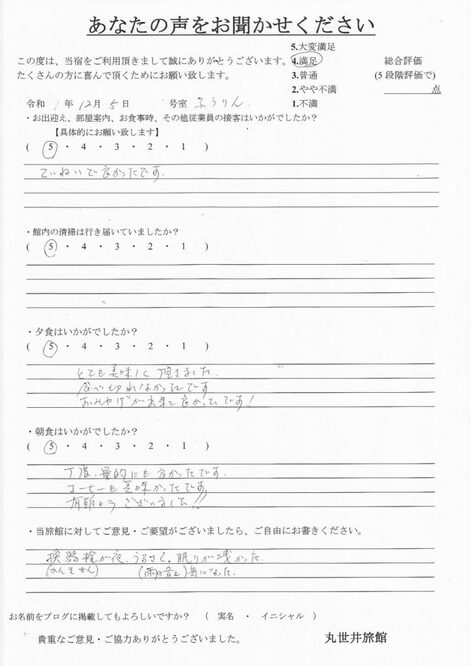 あなたの声をお聞かせください
この度は、当宿をご利用頂きまして誠にありがとうございます。
たくさんの方に喜んで頂くためにお願い致します。
5.大変満足
4.満足
3.普通
2.やや不満
1.不満
総合評価
(5段階評価で)
点
令和 1年 12月 5日 号室 ふうりん
・お出迎え、部屋案内、お食事時、その他従業員の接客はいかがでしたか?
【具体的にお願い致します】
( 5 ・ 4 ・ 3 ・ 2 ・ 1 )
ていねいで良かったです。
・館内の清掃は行き届いていましたか?
( 5 ・ 4 ・ 3 ・ 2 ・ 1 )
・夕食はいかがでしたか?
( 5 ・ 4 ・ 3 ・ 2 ・ 1 )
とても美味しく頂きました。
食べ切れなかったです。
おみやげが出来て良かったです!
・朝食はいかがでしたか?
( 5 ・ 4 ・ 3 ・ 2 ・ 1 )
丁度、量的にも良かったです。
コーヒーも美味かったです。
有難うございました!!
・当旅館に対してご意見・ご要望がございましたら、ご自由にお書きください。
換器栓が夜、うるさく、眠りが浅かった。
(かんきせん) (雨の音も)気になった。
お名前をブログに掲載してもよろしいですか? ( 実名 ・ イニシャル )
貴重なご意見・ご協力ありがとうございました。
丸世井旅館